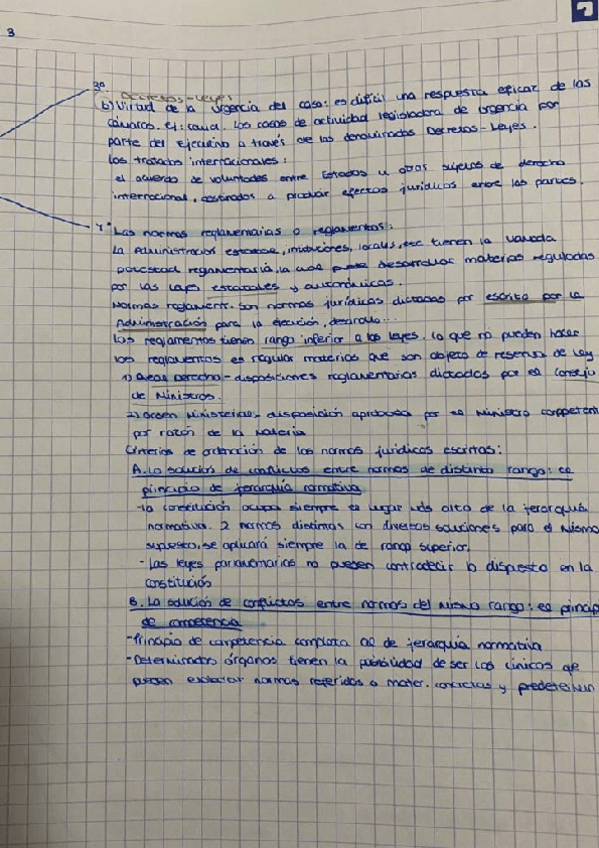 3
3º
Decretos-Leyes
b) Virtud de la urgencia del caso: es difícil una respuesta eficaz de las
cámaras. ej: covid. Los casos de actividad legisladora de urgencia por
parte del Ejecutivo a través de los denominados Decretos-Leyes.
Los tratados internacionales:
el acuerdo de voluntades entre Estados u otros sujetos de derecho
internacional, destinados a producir efectos jurídicos entre las partes.
4º Las normas reglamentarias o reglamentos:
La Administración estatal, instituciones, locales, etc tienen la llamada
potestad reglamentaria, la cual desarrollar materias reguladas
por las leyes estatales y autonómicas.
Normas reglament. son normas jurídicas dictadas por escrito por la
Administración para la ejecución, desarrollo...
Los reglamentos tienen rango inferior a las leyes. lo que no pueden hacer
los reglamentos es regular materias que son objeto de reserva de ley
1) Decreto - disposiciones reglamentarias dictadas por el Consejo
de Ministros.
2) Orden Ministerial, disposición aprobada por el Ministro competent
por razón de la materia
Criterios de ordenación de las normas jurídicas escritas:
A. La solución de conflictos entre normas de distinto rango: el
principio de jerarquía normativa
-la constitución ocupa siempre el lugar más alto de la jerarquía
normativa. 2 normas distintas con diversas soluciones para el mismo
supuesto, se aplicará siempre la de rango superior.
- Las leyes parlamentarias no pueden contradecir lo dispuesto en la
constitución
B. La solución de conflictos entre normas del mismo rango: el princip
de competencia
-Principio de competencia completa al de jerarquía normativa
-Determinados órganos tienen la posibilidad de ser los únicos que
pueden elaborar normas referidas a mater. concretas y predetermin